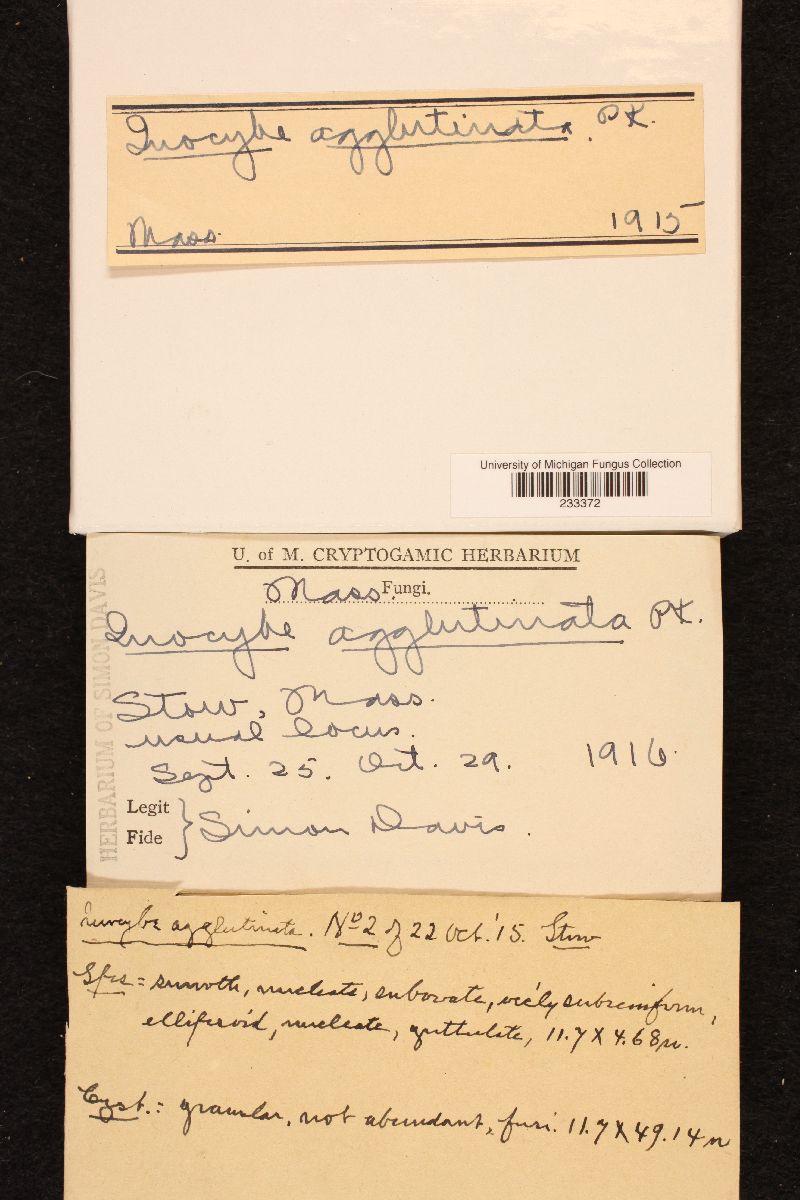 Inocybe agglutinata. Pk.
Mass. 1915
University of Michigan Fungus Collection
233372
U. of M. CRYPTOGAMIC HERBARIUM
Mass. Fungi.
Inocybe agglutinata Pk.
Stow, Mass.
usual locus.
Sept. 25. Oct. 29. 1916.
Legit
Fide } Simon Davis.
HERBARIUM OF SIMON DAVIS
Inocybe agglutinata. No 2 of 22 Oct. '15. Stow
Sps = smooth, nucleate, subovate, subreniform,
ellipsoid, nucleate, guttulate, 11.7 X 4.68 u.
Cyst.: granular, not abundant, fusi. 11.7 X 49.14 u